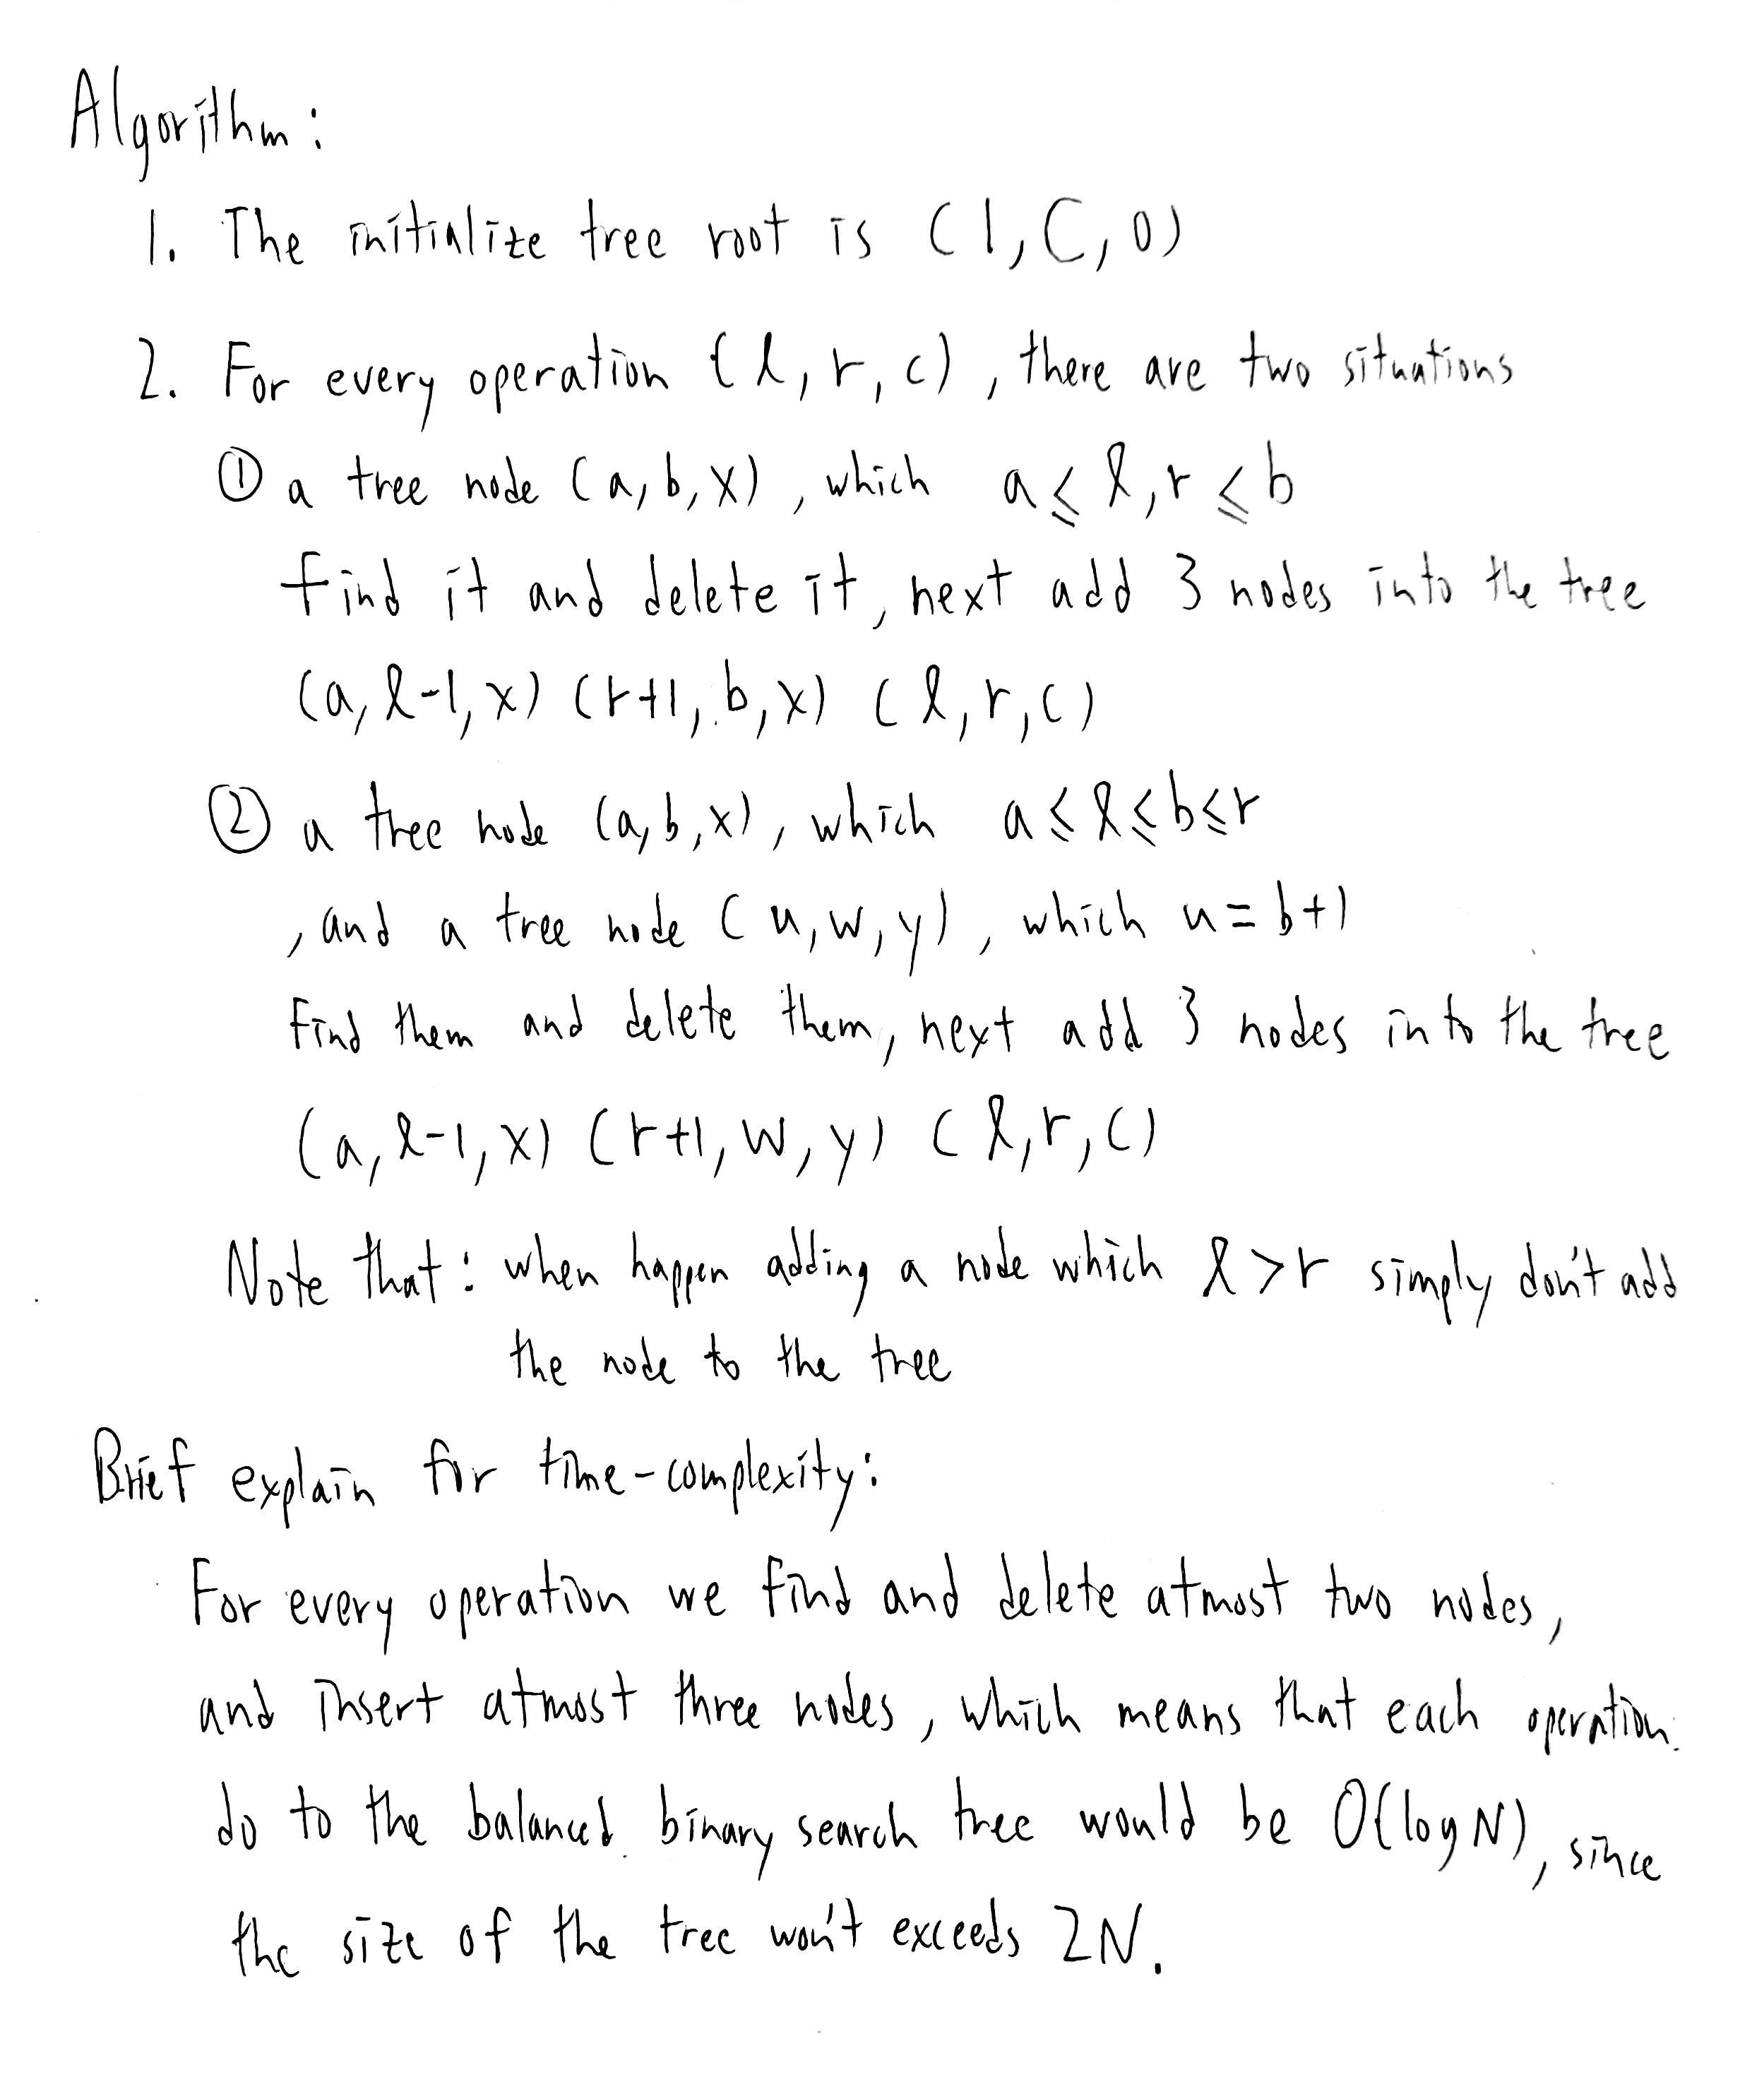 Algorithm:
1. The initialize tree root is (1, C, 0)
2. For every operation (l, r, c), there are two situations
① a tree node (a, b, x), which a ≤ l, r ≤ b
find it and delete it, next add 3 nodes into the tree
(a, l-1, x) (r+1, b, x) (l, r, c)
② a tree node (a, b, x), which a ≤ l ≤ b ≤ r
, and a tree node (u, w, y), which u = b+1
Find them and delete them, next add 3 nodes into the tree
(a, l-1, x) (r+1, w, y) (l, r, c)
Note that: when happen adding a node which l > r simply don't add
the node to the tree
Brief explain for time-complexity:
For every operation we find and delete atmost two nodes,
and insert atmost three nodes, which means that each operation
do to the balanced binary search tree would be O(log N), since
the size of the tree won't exceeds 2N.